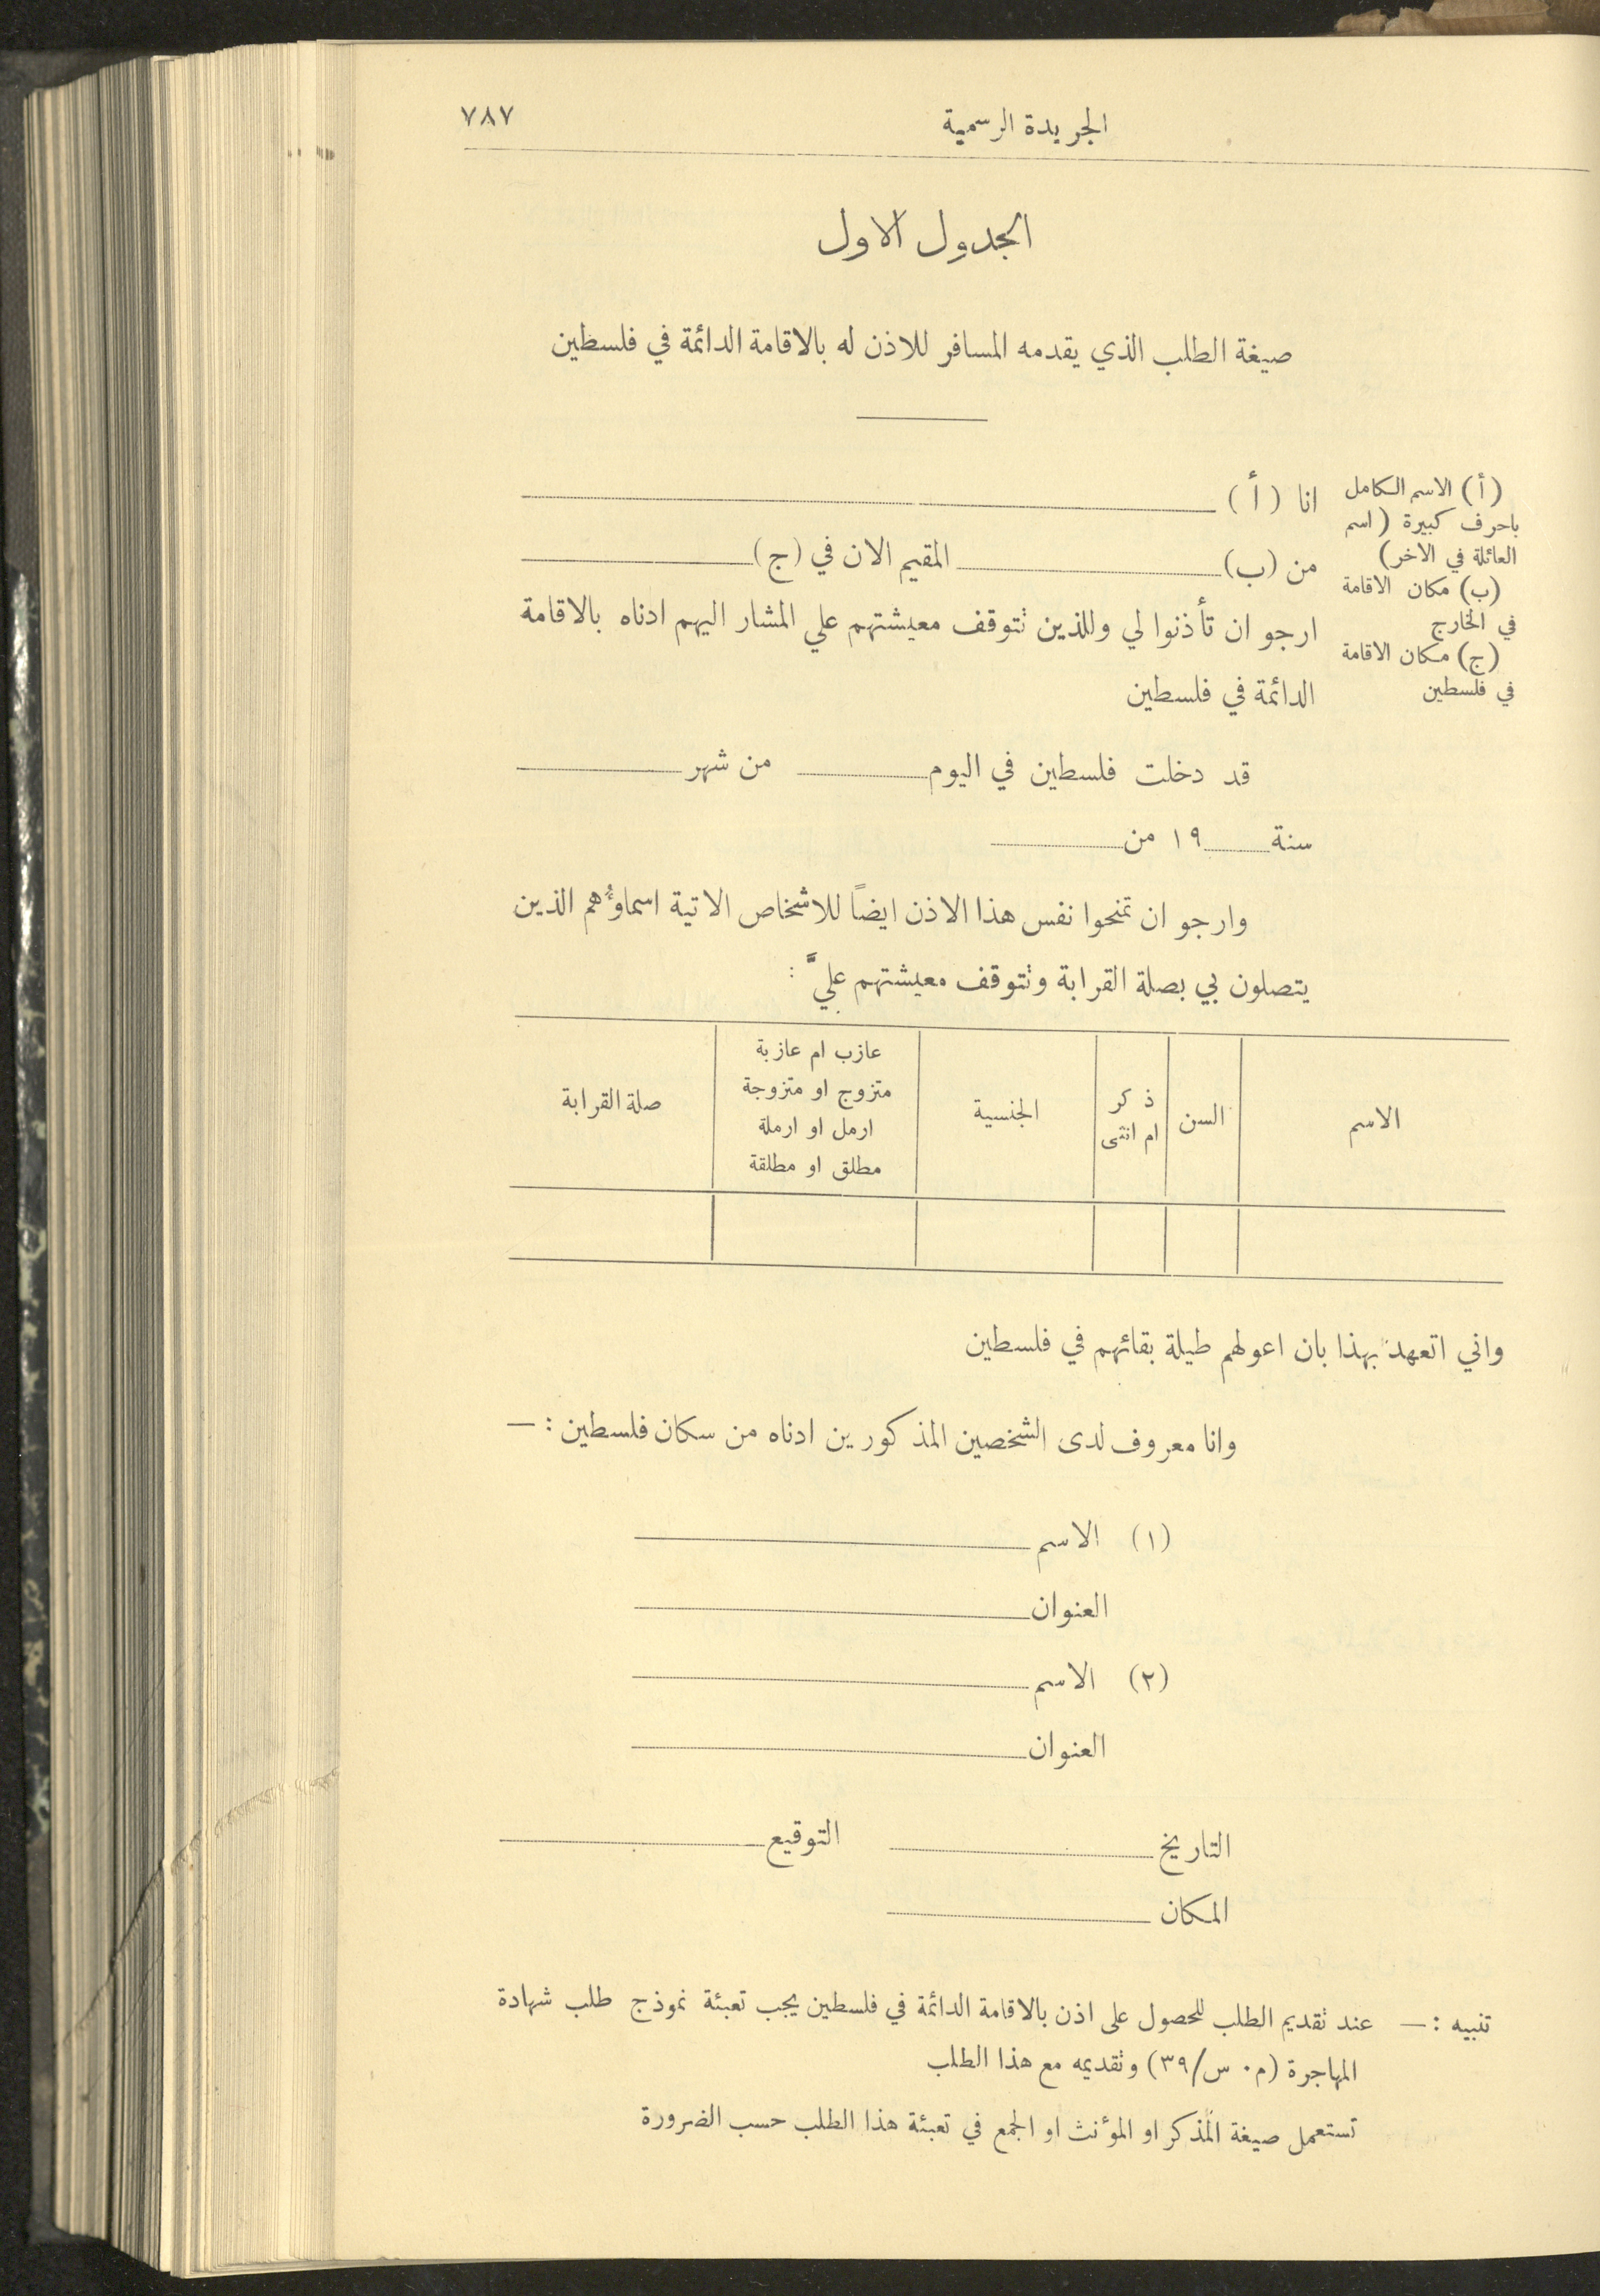 الجريدة الرسمية ٧٨٧
الجدول الاول
صيغة الطلب الذي يقدمه المسافر للاذن له بالاقامة الدائمة في فلسطين
(أ) الاسم الكامل
باحرف كبيرة (اسم
العائلة في الاخر)
(ب) مكان الاقامة
في الخارج
(ج) مكان الاقامة
في فلسطين
انا (أ)
من (ب) المقيم الان في (ج)
ارجو ان تأذنوا لي وللذين تتوقف معيشتهم علي المشار اليهم ادناه بالاقامة
الدائمة في فلسطين
قد دخلت فلسطين في اليوم من شهر
سنة ١٩ من
وارجو ان تمنحوا نفس هذا الاذن ايضاً للاشخاص الاتية اسماؤهم الذين
يتصلون بي بصلة القرابة وتتوقف معيشتهم عليَّ :
الاسم
السن
ذكر
ام انثى
الجنسية
عازب ام عازبة
متزوج او متزوجة
ارمل او ارملة
مطلق او مطلقة
صلة القرابة
واني اتعهد بهذا بان اعولهم طيلة بقائهم في فلسطين
وانا معروف لدى الشخصين المذكورين ادناه من سكان فلسطين : —
(١) الاسم
العنوان
(٢) الاسم
العنوان
التاريخ التوقيع
المكان
تنبيه : — عند تقديم الطلب للحصول على اذن بالاقامة الدائمة في فلسطين يجب تعبئة نموذج طلب شهادة
المهاجرة (م٠ س/٣٩) وتقديمه مع هذا الطلب
تستعمل صيغة المذكر او المؤنث او الجمع في تعبئة هذا الطلب حسب الضرورة